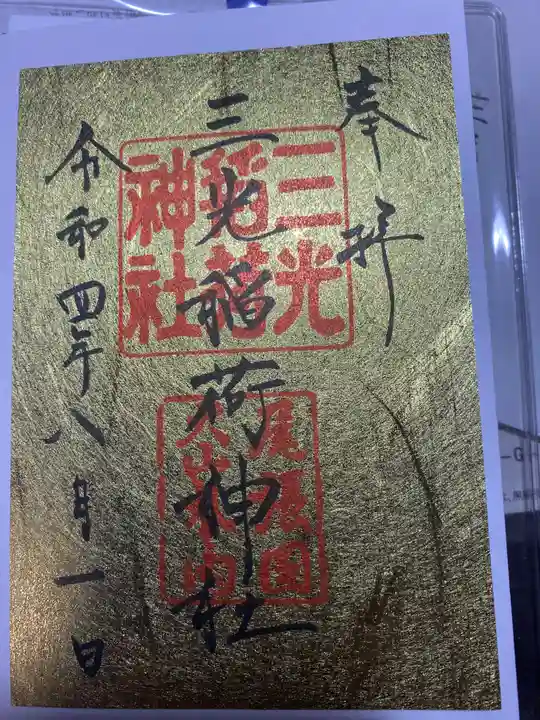 奉拝
三光稲荷神社
令和四年八月一日
三光
稲荷
神社
尾張国
犬山城内